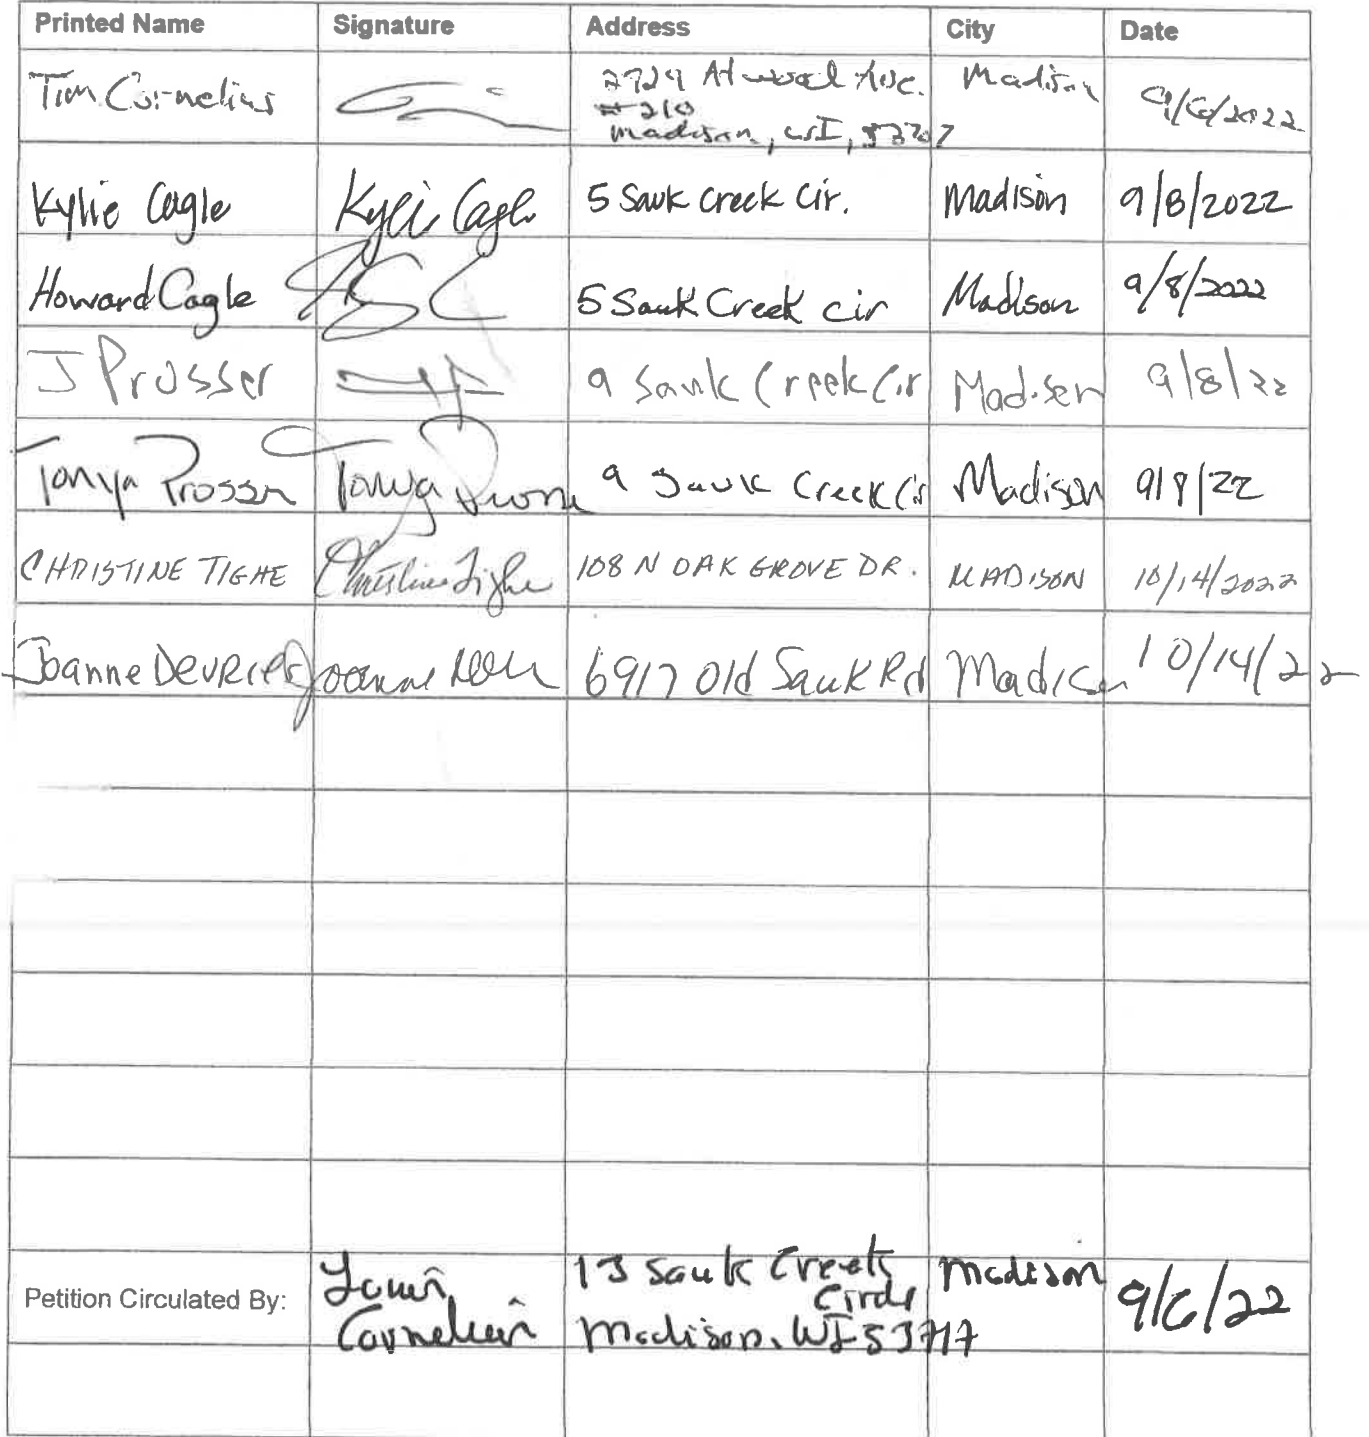 Printed Name Signature Address City Date
Tim Cornelius 2929 Atwood Ave. Madison 9/6/2022
#210
Madison, WI, 53707
Kylie Cagle Kylie Cagle 5 Sauk Creek Cir. Madison 9/8/2022
Howard Cagle 5 Sauk Creek cir Madison 9/8/2022
J Prosser 9 Sauk Creek Cir Madison 9/8/22
Tonya Prosser Tonya 9 Sauk Creek Cir Madison 9/8/22
CHRISTINE TIGHE Christine Tighe 108 N OAK GROVE DR. MADISON 10/14/2022
Joanne DeVRIES Joanne 6917 Old Sauk Rd Madison 10/14/22
Petition Circulated By: Cornelius 13 Sauk Creek Madison 9/6/22
Circle
Madison, WI 53717